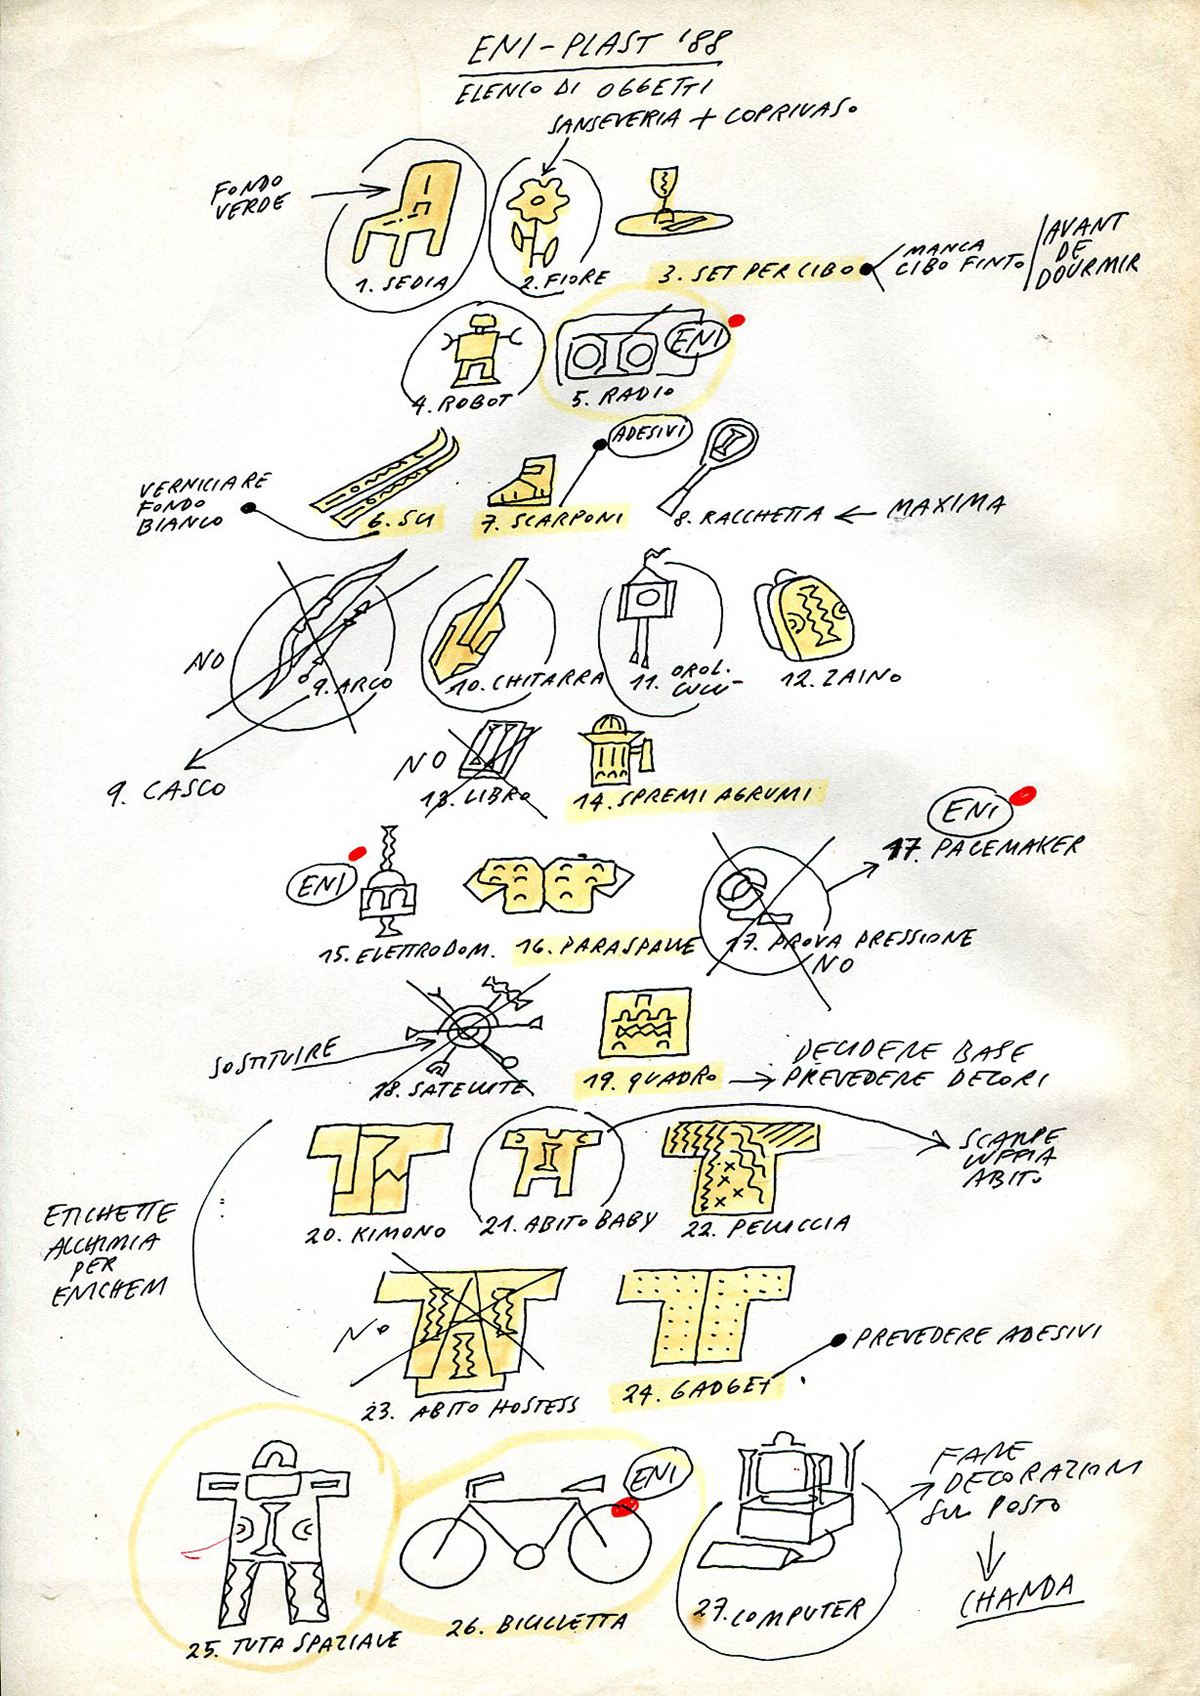 ENI-PLAST '88
ELENCO DI OGGETTI
SANSEVERIA + COPRIVASO
FONDO
VERDE
1. SEDIA
2. FIORE
3. SET PER CIBO
MANCA
CIBO FINTO
AVANT
DE
DOURMIR
4. ROBOT
5. RADIO
ENI
VERNICIARE
FONDO
BIANCO
6. SCI
7. SCARPONI
ADESIVI
8. RACCHETTA
MAXIMA
NO
9. ARCO
9. CASCO
10. CHITARRA
11. OROL.
CUCÙ
12. ZAINO
NO
13. LIBRO
14. SPREMI AGRUMI
ENI
15. ELETTRODOM.
16. PARASPALLE
17. PROVA PRESSIONE
NO
ENI
17. PACEMAKER
SOSTITUIRE
18. SATELLITE
19. QUADRO
DECIDERE BASE
PREVEDERE DECORI
ETICHETTE
ALCHIMIA
PER
ENICHEM
20. KIMONO
21. ABITO BABY
22. PELLICCIA
SCARPE
CUFFIA
ABITO
NO
23. ABITO HOSTESS
24. GADGET
PREVEDERE ADESIVI
25. TUTA SPAZIALE
26. BICICLETTA
ENI
27. COMPUTER
FARE
DECORAZIONI
SUL POSTO
CHANDA